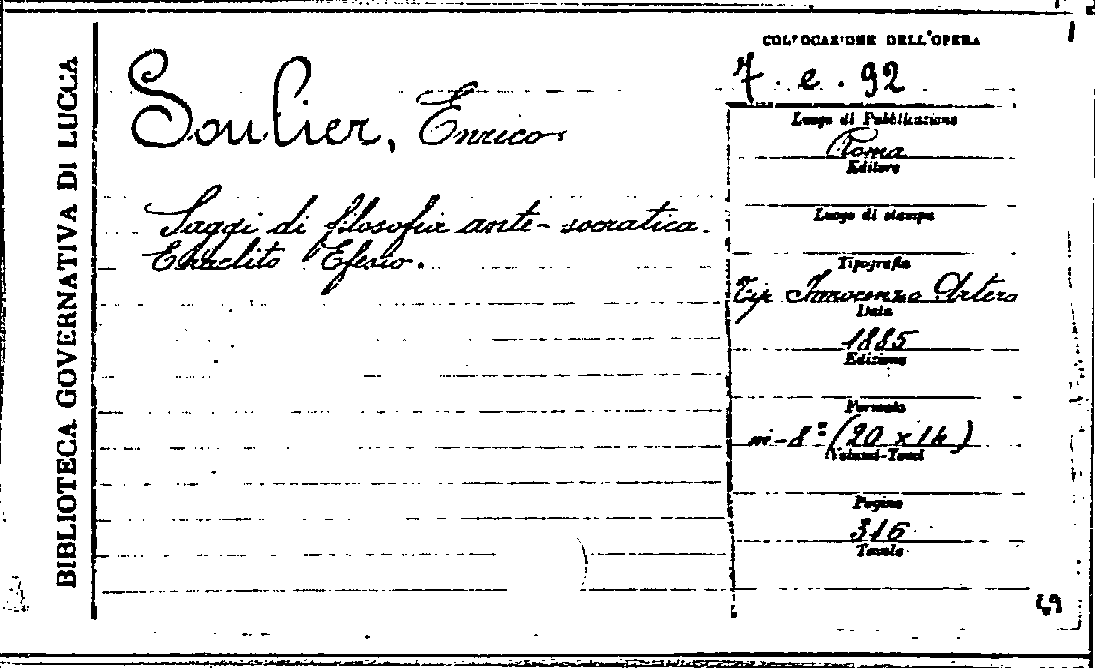 BIBLIOTECA GOVERNATIVA DI LUCCA
Soulier, Enrico
Saggi di filosofia ante-socratica.
Eraclito Efesio.
COLLOCAZIONE DELL'OPERA
7. e. 92
Luogo di Pubblicazione
Roma
Editore
Luogo di stampa
Tipografia
Tip Innocenzo Artero
Data
1885
Edizione
Formato
in-8° (20 x 14)
Volumi-Tomi
Pagine
316
Tavole
49